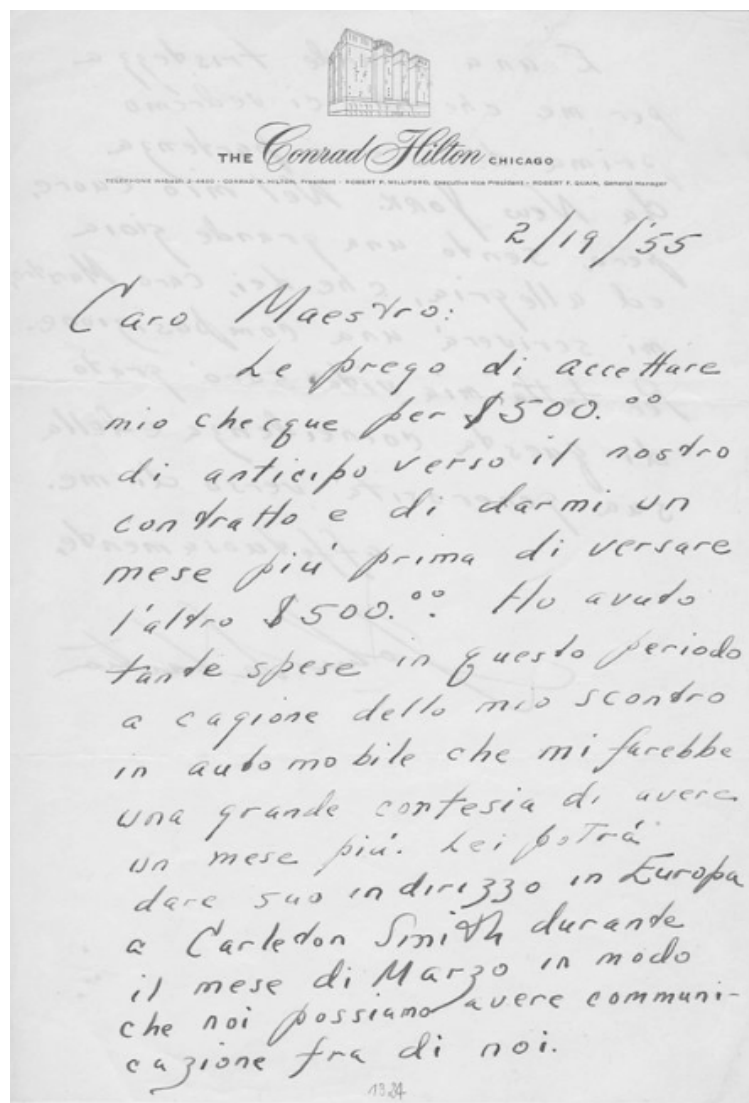 THE Conrad Hilton CHICAGO
TELEPHONE WAbash 2-4400 - CONRAD N. HILTON, President - ROBERT P. WILLIFORD, Executive Vice President - ROBERT F. QUAIN, General Manager
2/19/'55
Caro Maestro:
Le prego di accettare
mio checque per $500.00
di anticipo verso il nostro
contratto e di darmi un
mese piú prima di versare
l'altro $500.00. Ho avuto
tante spese in questo periodo
a cagione dello mio scontro
in automobile che mi farebbe
una grande cortesia di avere
un mese piú. Lei potrá
dare suo indirizzo in Europa
a Carleton Smith durante
il mese di Marzo in modo
che noi possiamo avere communi-
cazione fra di noi.
1384